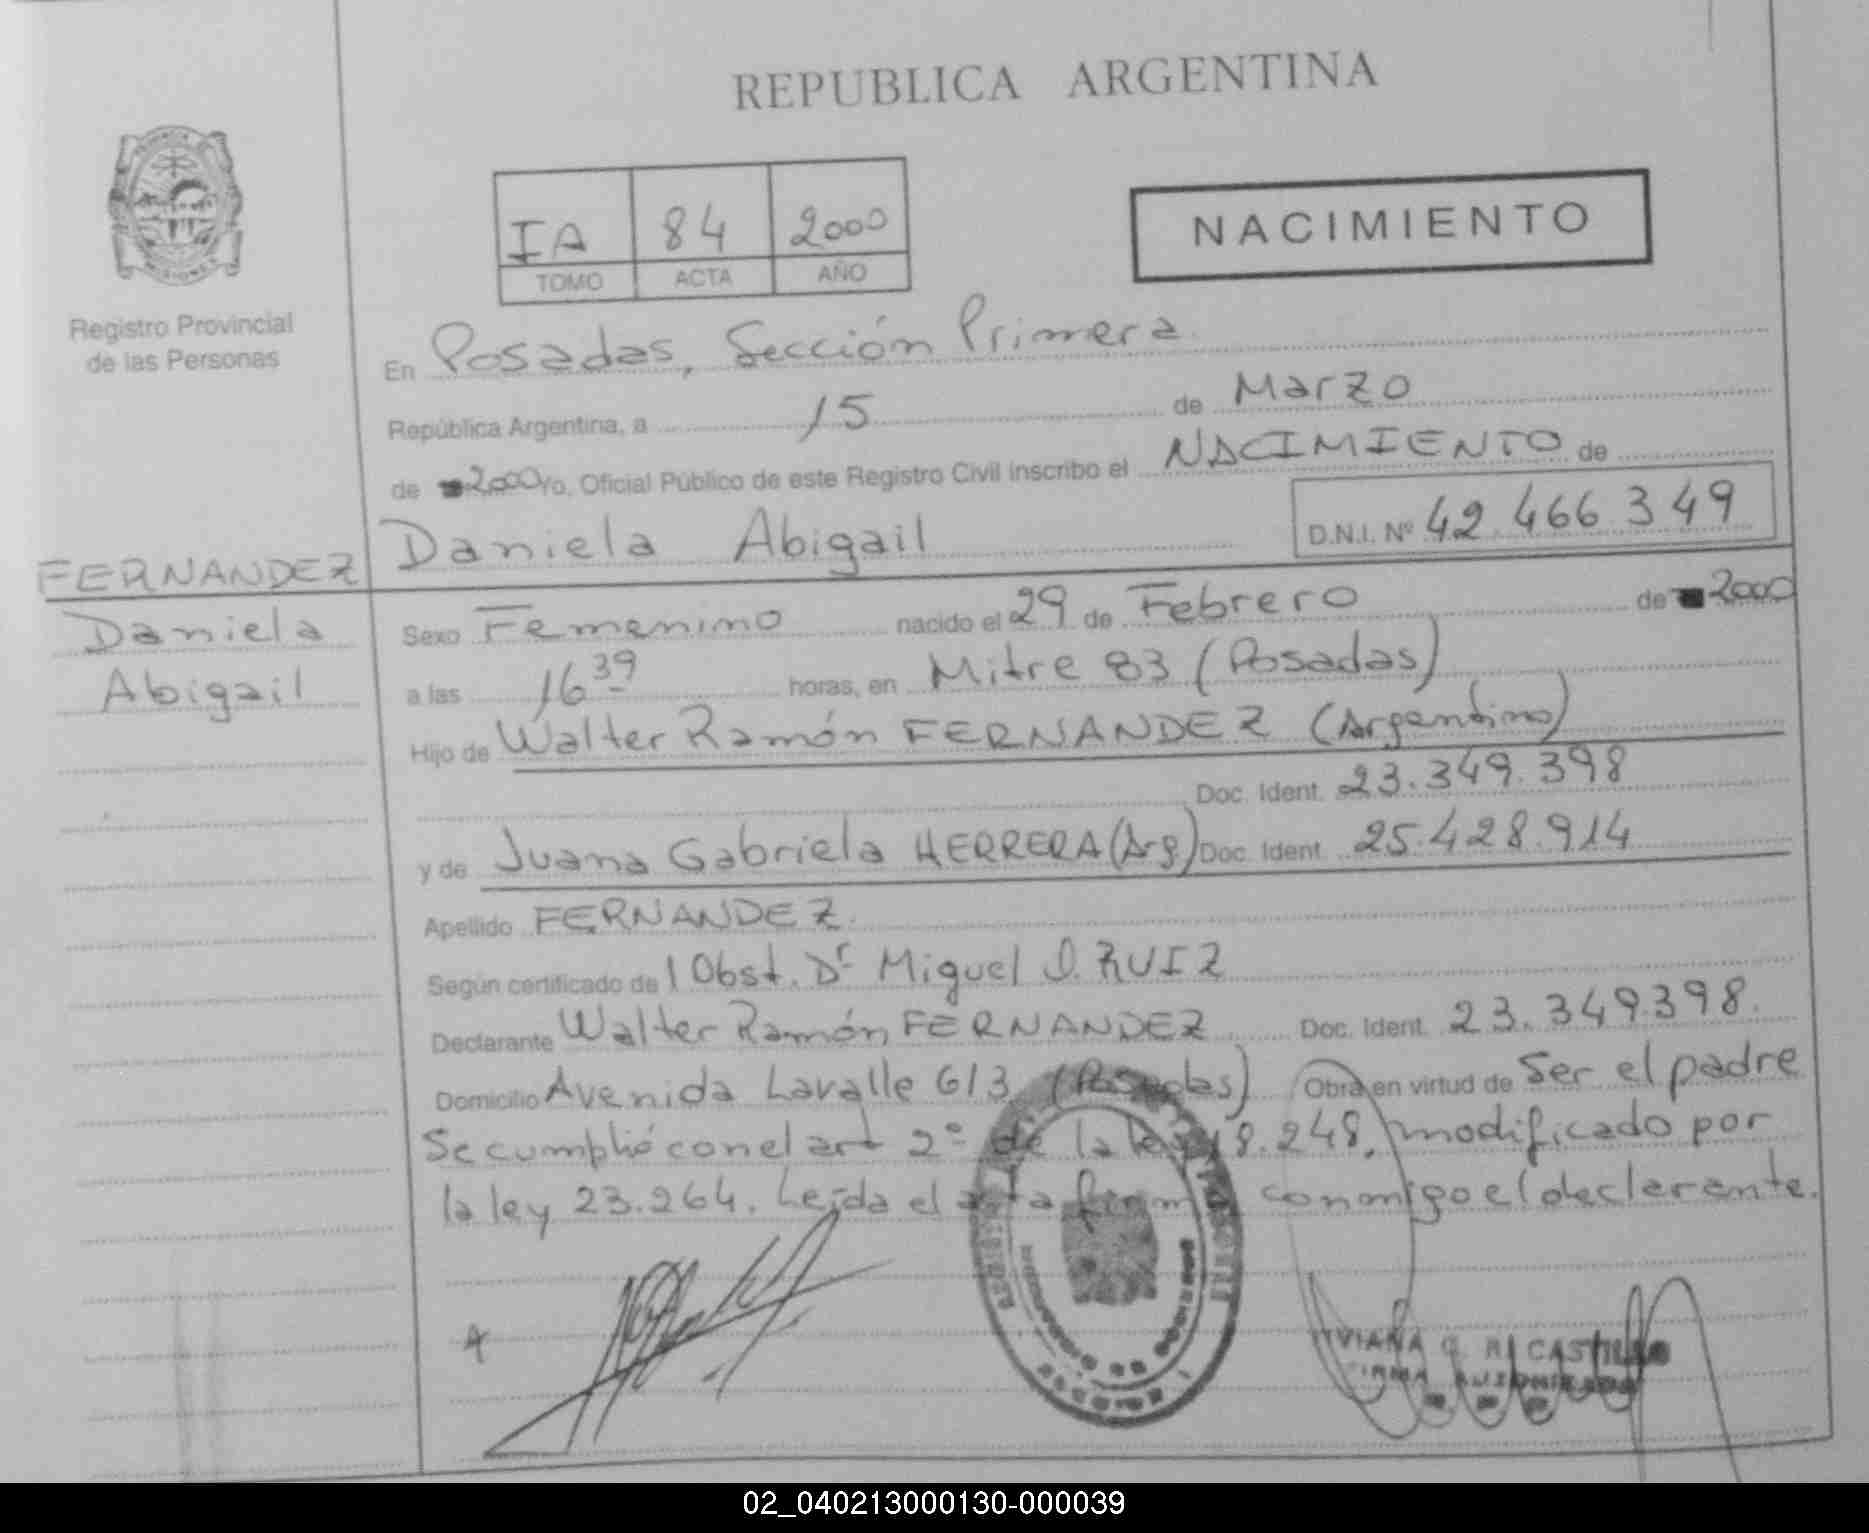 REPUBLICA ARGENTINA
IA 84 2000
TOMO ACTA AÑO
NACIMIENTO
Registro Provincial
de las Personas
En Posadas, Sección Primera
República Argentina, a 15 de Marzo
de 2000 Yo, Oficial Público de este Registro Civil inscribo el NACIMIENTO de
Daniela Abigail D.N.I. Nº 42.466.349
FERNANDEZ
Daniela
Abigail
Sexo Femenino nacido el 29 de Febrero de 2000
a las 16 39 horas, en Mitre 83 (Posadas)
Hijo de Walter Ramón FERNANDEZ (Argentino)
Doc. Ident. 23.349.398
y de Juana Gabriela HERRERA (Arg) Doc. Ident. 25.428.914
Apellido FERNANDEZ.
Según certificado de l Obst. Dr Miguel RUIZ
Declarante Walter Ramón FERNANDEZ Doc. Ident. 23.349.398.
Domicilio Avenida Lavalle 613 (Posadas) Obra en virtud de Ser el padre
Se cumplió con el art 2º de la ley 18.248, modificado por
la ley 23.264. Leída el acta firma conmigo el declarante.
VIVIANA CASTILLO
FIRMA AUTORIZADA
02_040213000130-000039